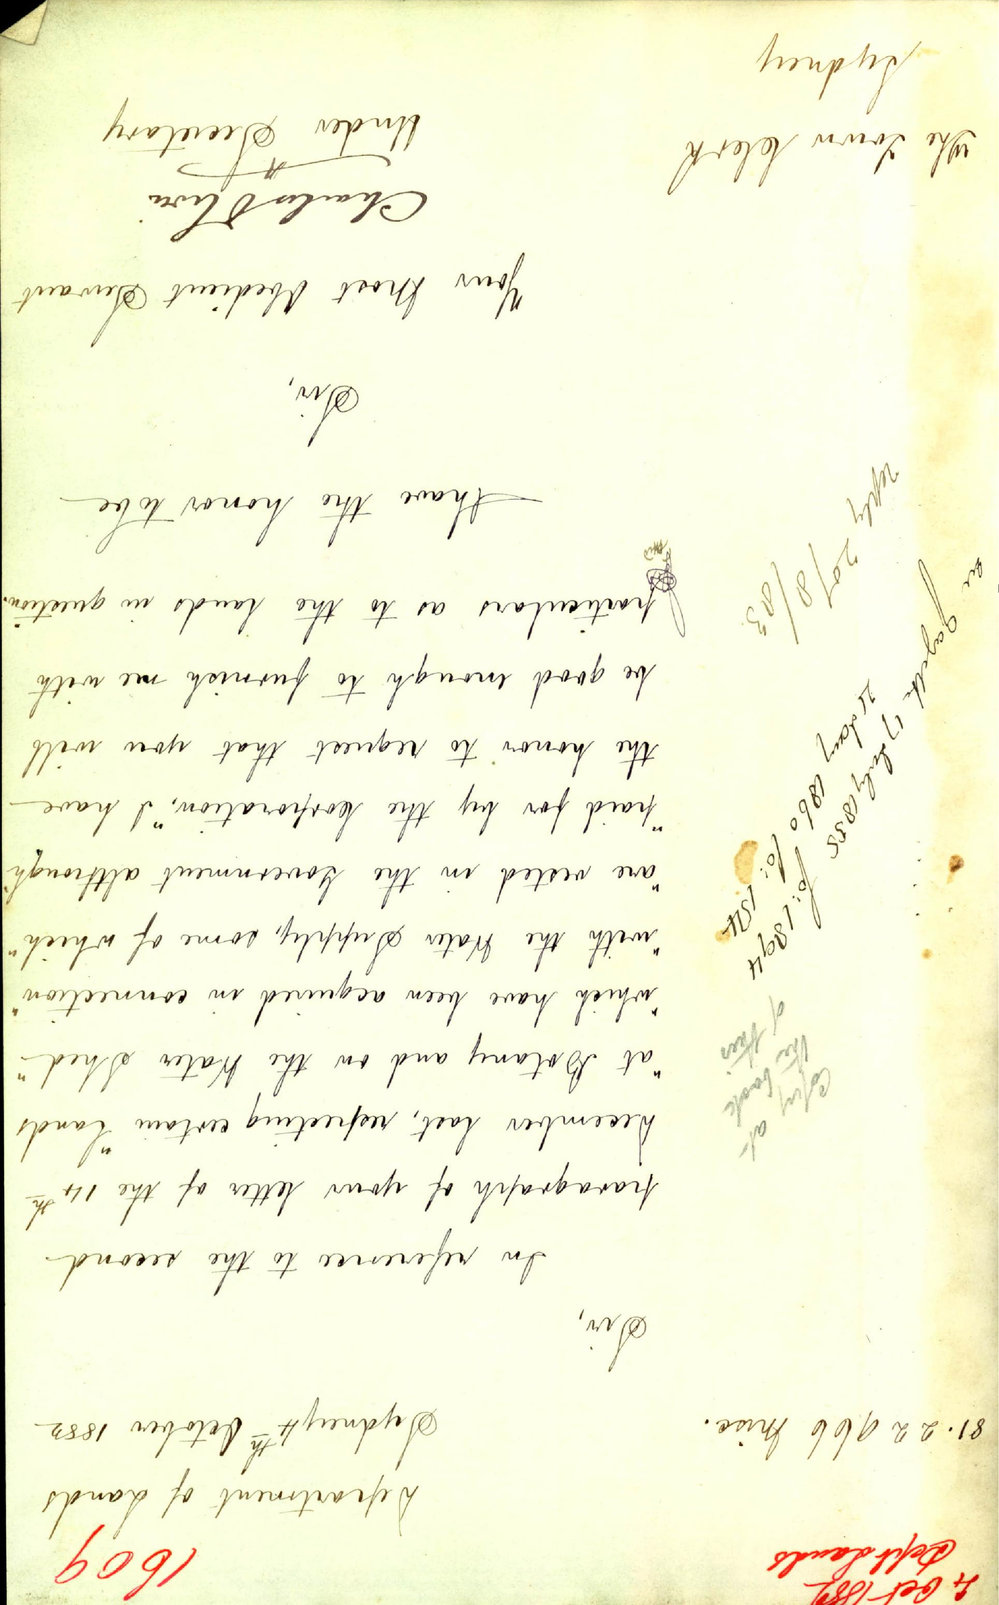 4 Oct 1882
Dept Lands
1609
81.22966 Misc.
Department of Lands
Sydney 4th October 1882
Sir,
In reference to the second
paragraph of your letter of the 14th
December last, respecting certain "lands
"at Botany and on the Water Shed"
"which have been acquired in connection"
"with the Water Supply, some of which"
"are vested in the Government although"
"paid for by the Corporation", I have
the honor to request that you will
be good enough to furnish me with
particulars as to the lands in question.
I have the honor to be
Sir,
Your Most Obedient Servant
Charles Oliver
Under Secretary
The Town Clerk
Sydney
Copy at
the back
of this
see Gazette 17 July 1855 fo: 1894
21 Jany 1860 fo: 134
reply 2078/83